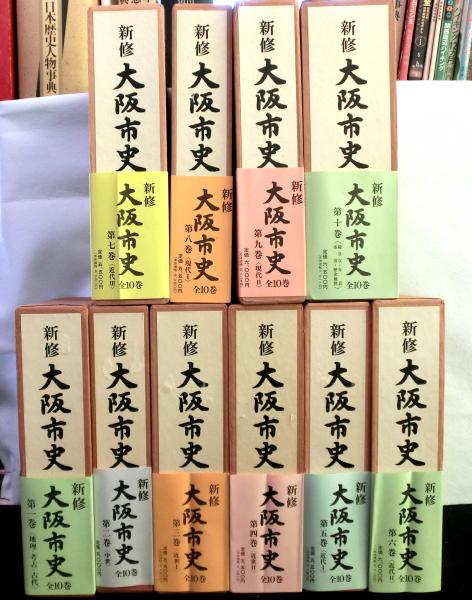 日本歴史人物事典
新修
大阪市史
新修
大阪市史
第七巻
(近代II)
全10巻
定価 五、五〇〇円
新修
大阪市史
新修
大阪市史
第八巻
(現代I)
全10巻
定価 五、五〇〇円
新修
大阪市史
新修
大阪市史
第九巻
(現代II)
全10巻
定価 六、〇〇〇円
新修
大阪市史
新修
大阪市史
第十巻
全10巻
定価 六、五〇〇円
新修
大阪市史
新修
大阪市史
第一巻
(地理・考古・古代)
全10巻
新修
大阪市史
新修
大阪市史
第二巻
(中世)
全10巻
新修
大阪市史
新修
大阪市史
第三巻
(近世I)
全10巻
新修
大阪市史
新修
大阪市史
第四巻
(近世II)
全10巻
新修
大阪市史
新修
大阪市史
第五巻
(近代I)
全10巻
新修
大阪市史
新修
大阪市史
第六巻
(近代II)
全10巻